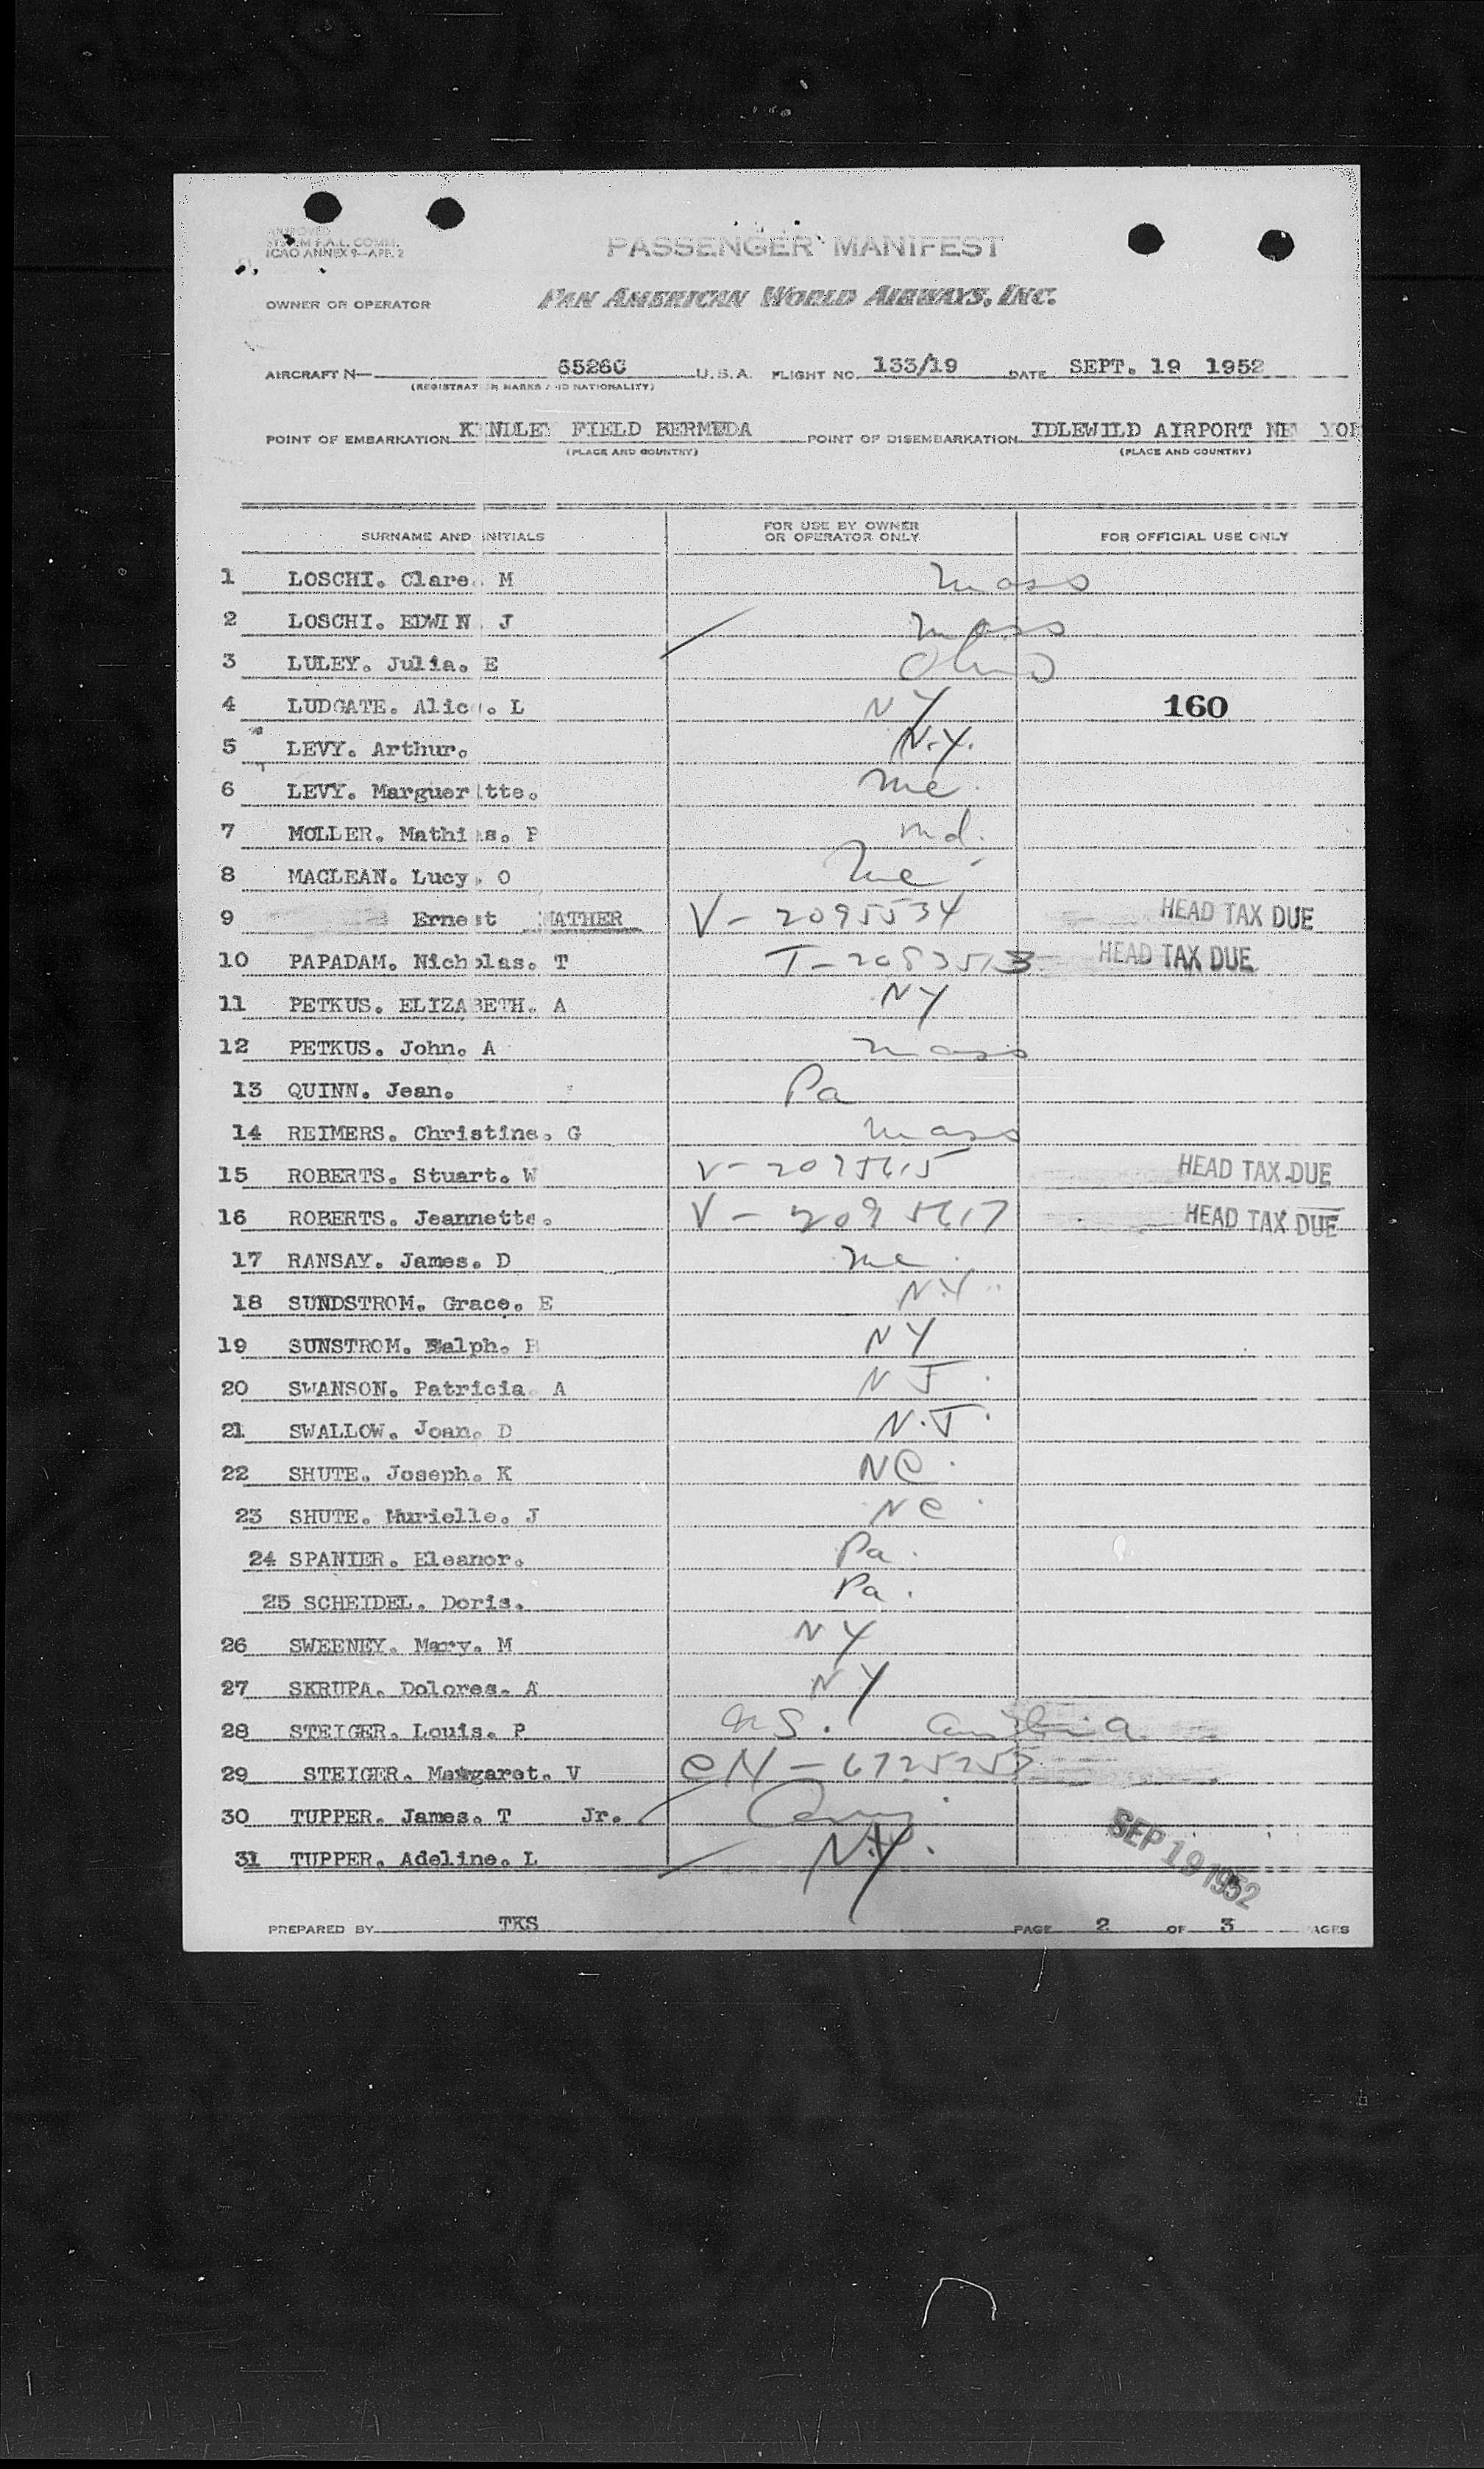 APPROVED
SYSTEM F.A.L. COMM.
ICAO ANNEX 9—APP. 2
PASSENGER MANIFEST
OWNER OR OPERATOR PAN AMERICAN WORLD AIRWAYS, INC.
AIRCRAFT N— U.S.A. FLIGHT NO. 133/19 DATE SEPT. 19 1952
(REGISTRATION MARKS AND NATIONALITY)
POINT OF EMBARKATION KINDLEY FIELD BERMUDA POINT OF DISEMBARKATION IDLEWILD AIRPORT NEW YOR
(PLACE AND COUNTRY) (PLACE AND COUNTRY)
SURNAME AND INITIALS FOR USE BY OWNER OR OPERATOR ONLY FOR OFFICIAL USE ONLY
1 LOSCHI. Clare. M Mass
2 LOSCHI. EDWIN. J Mass
3 LULEY. Julia. E Ohio
4 LUDGATE. Alice. L NY 160
5 LEVY. Arthur. N.Y.
6 LEVY. Margueritte. Me.
7 MOLLER. Mathias. P Md.
8 MACLEAN. Lucy. O Me
9 Ernest MATHER V-2095534 HEAD TAX DUE
10 PAPADAM. Nicholas. T HEAD TAX DUE
11 PETKUS. ELIZABETH. A NY
12 PETKUS. John. A Mass
13 QUINN. Jean. Pa
14 REIMERS. Christine. G Mass
15 ROBERTS. Stuart. W V-2095615 HEAD TAX DUE
16 ROBERTS. Jeannette. V-2095617 HEAD TAX DUE
17 RANSAY. James. D Me.
18 SUNDSTROM. Grace. E N.Y.
19 SUNSTROM. Ralph. NY
20 SWANSON. Patricia. A NJ.
21 SWALLOW. Joan. D N.J.
22 SHUTE. Joseph. K NC.
23 SHUTE. Murielle. J NC.
24 SPANIER. Eleanor. Pa.
25 SCHEIDEL. Doris. Pa.
26 SWEENEY. Mary. M NY
27 SKRUPA. Dolores. A NY
28 STEIGER. Louis. P Austria
29 STEIGER. Margaret. V CN-6725257
30 TUPPER. James. T Jr.
31 TUPPER. Adeline. L N.Y.
SEP 19 1952
PREPARED BY TKS PAGE 2 OF 3 PAGES